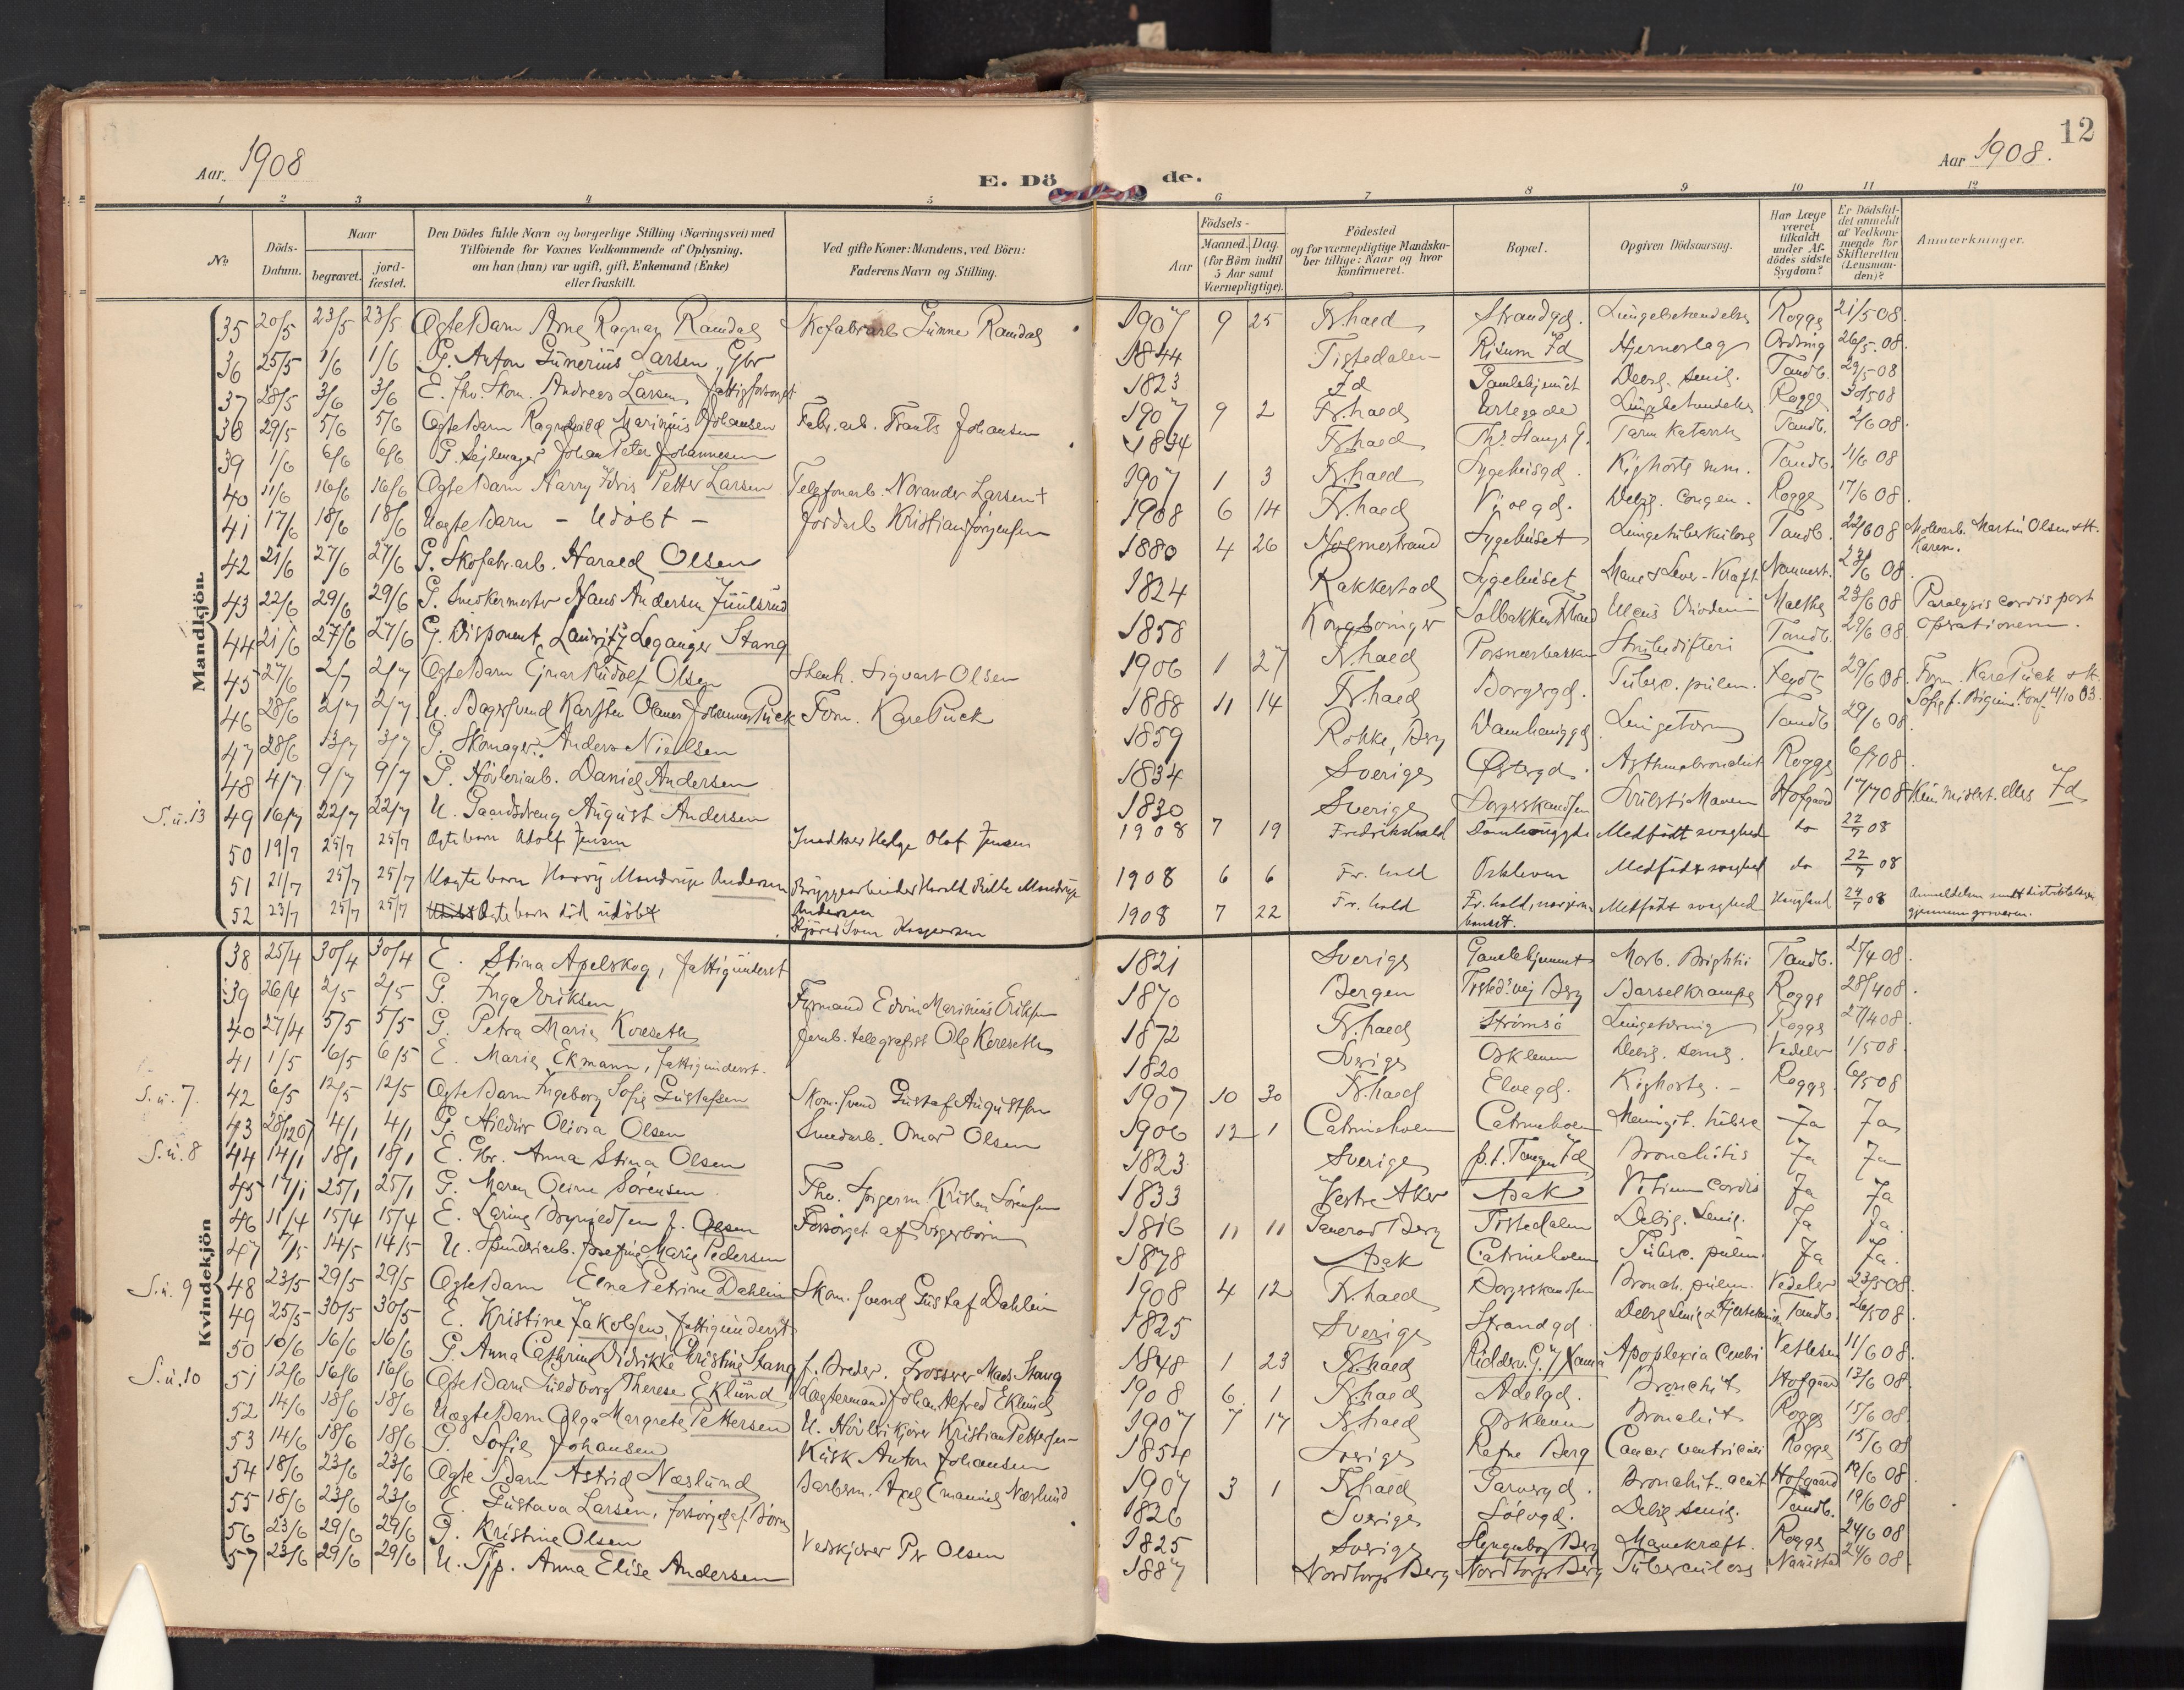 Aar. 1908
E. Dö
de.
Aar 1908.
12
1 2 3 4 5 6 7 8 9 10 11 12
No
Döds-Datum.
Naar
begravet.
jord-fæstet.
Den Dödes fulde Navn og borgerlige Stilling (Næringsvei) med
Tilföiende for Voxnes Vedkommende af Oplysning,
om han (hun) var ugift, gift, Enkemand (Enke)
eller fraskilt.
Ved gifte Koner: Mandens, ved Börn:
Faderens Navn og Stilling.
Födsels-
Aar
Maaned. Dag.
(for Börn indtil
5 Aar samt
Værnepligtige).
Födested
og for værnepligtige Mandska-
ber tillige: Naar og hvor
konfirmeret.
Bopæl.
Opgiven Dödsaarsag.
Har Læge
været
tilkaldt
under Af-
dödes sidste
Sygdom?
Er Dödsfal-
det anmeldt
af Vedkom-
mende for
Skifteretten
(Lensman-
den)?
Anmærkninger.
Mandkjön.
35 20/5 23/5 23/5 Ægte Barn Arne Ragnar Ramdal Skofabrarb Gunne Ramdal 1907 9 25 Fr.hald Strandgd. Lungebetændelse Rogge 21/5 08.
36 25/5 1/6 1/6 G. Anton Gunerius Larsen, Gbr 1844 Tistedalen Risum Id Hjerneslag Ording 26/5. 08.
37 28/5 3/6 3/6 E. fhv. Skom. Andreas Larsen, fattigforsørget 1823 Id Gamlehjemmet Debil. senil. Tandb. 29/5 08
38 29/5 5/6 5/6 Ægte Barn Ragnvald Marinius Johansen Fabr.arb. Frants Johansen 1907 9 2 Fr.hald Urtegade Lungebetændelse Rogge 30/5 08
39 1/6 6/6 6/6 G. Sejlmager Johan Peter Johannesen 1834 Fr.hald Ths. Stangs G. Tarm Katarrh Tandb. 2/6 08.
40 11/6 16/6 16/6 Ægte Barn Harry Idris Petter Larsen Telefonarb. Norander Larsen + 1907 1 3 Fr.hald Sygehusgd. Kighoste m.m. Tandb. 11/6 08
41 17/6 18/6 18/6 Uægte Barn - Udöbt - Jordarb Kristian Jörgensen 1908 6 14 Fr.hald Violgd. Debil. congen. Rogge 17/6 08.
42 21/6 27/6 27/6 G. Skofabr.arb. Harald Olsen 1880 4 26 Holmestrand Sygehuset Lungetuberkulose Tandb. 22/6 08 Martin Olsen & H. Karen.
43 22/6 29/6 29/6 G. Snedkermester Hans Andersen Juulsrud 1824 Rakkestad Sygehuset Mave & Lever-Kræft Nannest. 23/6 08.
44 21/6 27/6 27/6 G. Disponent Lauritz Leganger Stang 1858 Kongsvinger Solbakken Fr.hald Ulcus Malthe 23/6 08 Paralysis cordis post operationem.
45 27/6 2/7 2/7 Ægte Barn Ejnar Rudolf Olsen Stenh. Sigvart Olsen 1906 1 27 Fr.hald Strubedifteri Tandb. 29/6 08
46 28/6 2/7 2/7 U. Bagersvend Karsten Olaves Johannes Puck Form. Karl Puck 1888 11 14 Fr.hald Borgergd. Tuberc. pulm. Fejdt 29/6 08. Form. Karl Puck & H. Konf 4/10 03.
47 28/6 3/7 3/7 G. Skomager Anders Nielsen 1859 Rokke, Berg Damhauggd. Lungetæring Tandb 29/6 08
48 4/7 9/7 9/7 G. Høvleriarb. Daniel Andersen 1834 Sverige Østergd. Asthmabronchit Rogge 6/7 08.
S.u. 13 49 16/7 22/7 22/7 U. Gaardsdreng August Andersen 1830 Sverige Borgerskandsen Svulst i Maven Hofgaard 17/7 08 Kun midlert. ellers Id
50 19/7 25/7 25/7 Ægte barn Adolf Jensen Snedker Helge Olaf Jensen 1908 7 19 Fredrikshald Damhauggd. Medfødt svaghed do 22/7 08
51 21/7 25/7 25/7 Uægte barn Harry Mandrup Andersen Bryggearbeider Harald Mandrup Andersen 1908 6 6 Fr. hald Oskleven Medfødt svaghed do 22/7 08
52 23/7 25/7 25/7 Ægte barn död udöbt Kjører Sven Kaspersen 1908 7 22 Fr. hald Fr. hald, Medfødt svaghed Haugland 24/7 08 Anmeldelsen gjennem graveren.
Kvindekjön
38 25/4 30/4 30/4 E. Stina Apelskog, fattigunderst 1821 Sverige Gamlehjemmet Morb. Brightii Tandb. 25/4 08.
39 26/4 2/5 2/5 G. Inga Eriksen Formand Edvin Marinius Eriksen 1870 Bergen Tisted.vej Berg Barselkrampe Rogge 28/4 08.
40 27/4 5/5 5/5 G. Petra Marie Kvæseth Jernb. telegrafist Ole Kvæseth 1872 Fr.hald Strømsö Lungetæring Rogge 27/4 08.
41 1/5 6/5 6/5 E. Marie Ekmann, fattigunderst. 1820 Sverige Oskleven Debil. senil. Vedeler 1/5 08.
S.u. 7. 42 6/5 12/5 12/5 Ægte Barn Ingeborg Sofie Gustafsen Skom.svend Gustaf Augustsen 1907 10 30 Fr.hald Elvegd. Kighoste. - Rogge 6/5 08
43 28/12 07 4/1 4/1 G. Hildur Olivia Olsen Smedarb. Omar Olsen 1906 12 1 Catrineholm Catrineholm Meningit. tuberc Ja Ja
S.u. 8 44 14/1 18/1 18/1 E. Gbr. Anna Stina Olsen 1823 Sverige p.t. Tangen Id Bronchitis Ja Ja
45 17/1 25/1 25/1 G. Maren Oline Sörensen Fhv. Spigerm. Kristen Sörensen 1833 Vestre Aker Asak Vitium cordis Ja Ja
46 11/4 15/4 15/4 E. Larine Brynildsen f. Olsen Forsørget af Svigerbörn 1816 11 11 Berg Tistedalen Debil. senil. Ja Ja.
47 7/5 14/5 14/5 U. Spinderiarb. Josefine Marie Pedersen 1878 Asak Catrineholm Tuberc. pulm. Ja Ja.
S.u. 9 48 23/5 29/5 29/5 Ægte Barn Elna Petrine Dahlin Skom.svend Gustaf Dahlin 1908 4 12 Fr.hald Borgerskandsen Bronch. pulm. Vedeler 23/5 08.
49 25/5 30/5 30/5 E. Kristine Jakobsen, fattigunderst 1825 Sverige Strandgd. Debil senil & Tandb. 26/5 08
50 10/6 16/6 16/6 G. Anna Cathrine Didrikke Christine Stang f. Breder. Grosserer Mads Stang 1848 1 23 Fr.hald Apoplexia Cerebri Vetlesen 11/6 08.
S.u. 10 51 12/6 16/6 16/6 Ægte Barn Guldborg Therese Eklund Lagtermand Johan Alfred Eklund 1908 6 1 Fr.hald Adelgd. Bronchit Hofgaard 13/6 08.
52 14/6 18/6 18/6 Uægte Barn Olga Margrete Pettersen U. Høvlerikjører Kristian Pettersen 1907 7 17 Fr.hald Oskleven Bronchit Rogge 15/6 08.
53 14/6 18/6 18/6 G. Sofie Johansen Kusk Anton Johansen 1854 Sverige Refne Berg Cancer ventriculi Rogge 15/6 08
54 18/6 23/6 23/6 Ægte Barn Astrid Næslund Barberm. Axel Emanuel Næslund 1907 3 1 Fr.hald Garvergd. Bronchit. acut Hofgaard 19/6 08.
55 18/6 23/6 23/6 E. Gustava Larsen, forsørget af Börn 1826 Sverige Sölvgd. Debil senil. Tandb. 19/6 08
56 23/6 29/6 29/6 G. Kristine Olsen Vedkjører Pr Olsen 1825 Sverige Berg Mavekræft. Rogge 24/6 08
57 23/6 29/6 29/6 U. Tjp. Anna Elise Andersen 1887 Nordtorp Berg Nordtorp Berg Tuberculose Nannestad 24/6 08.